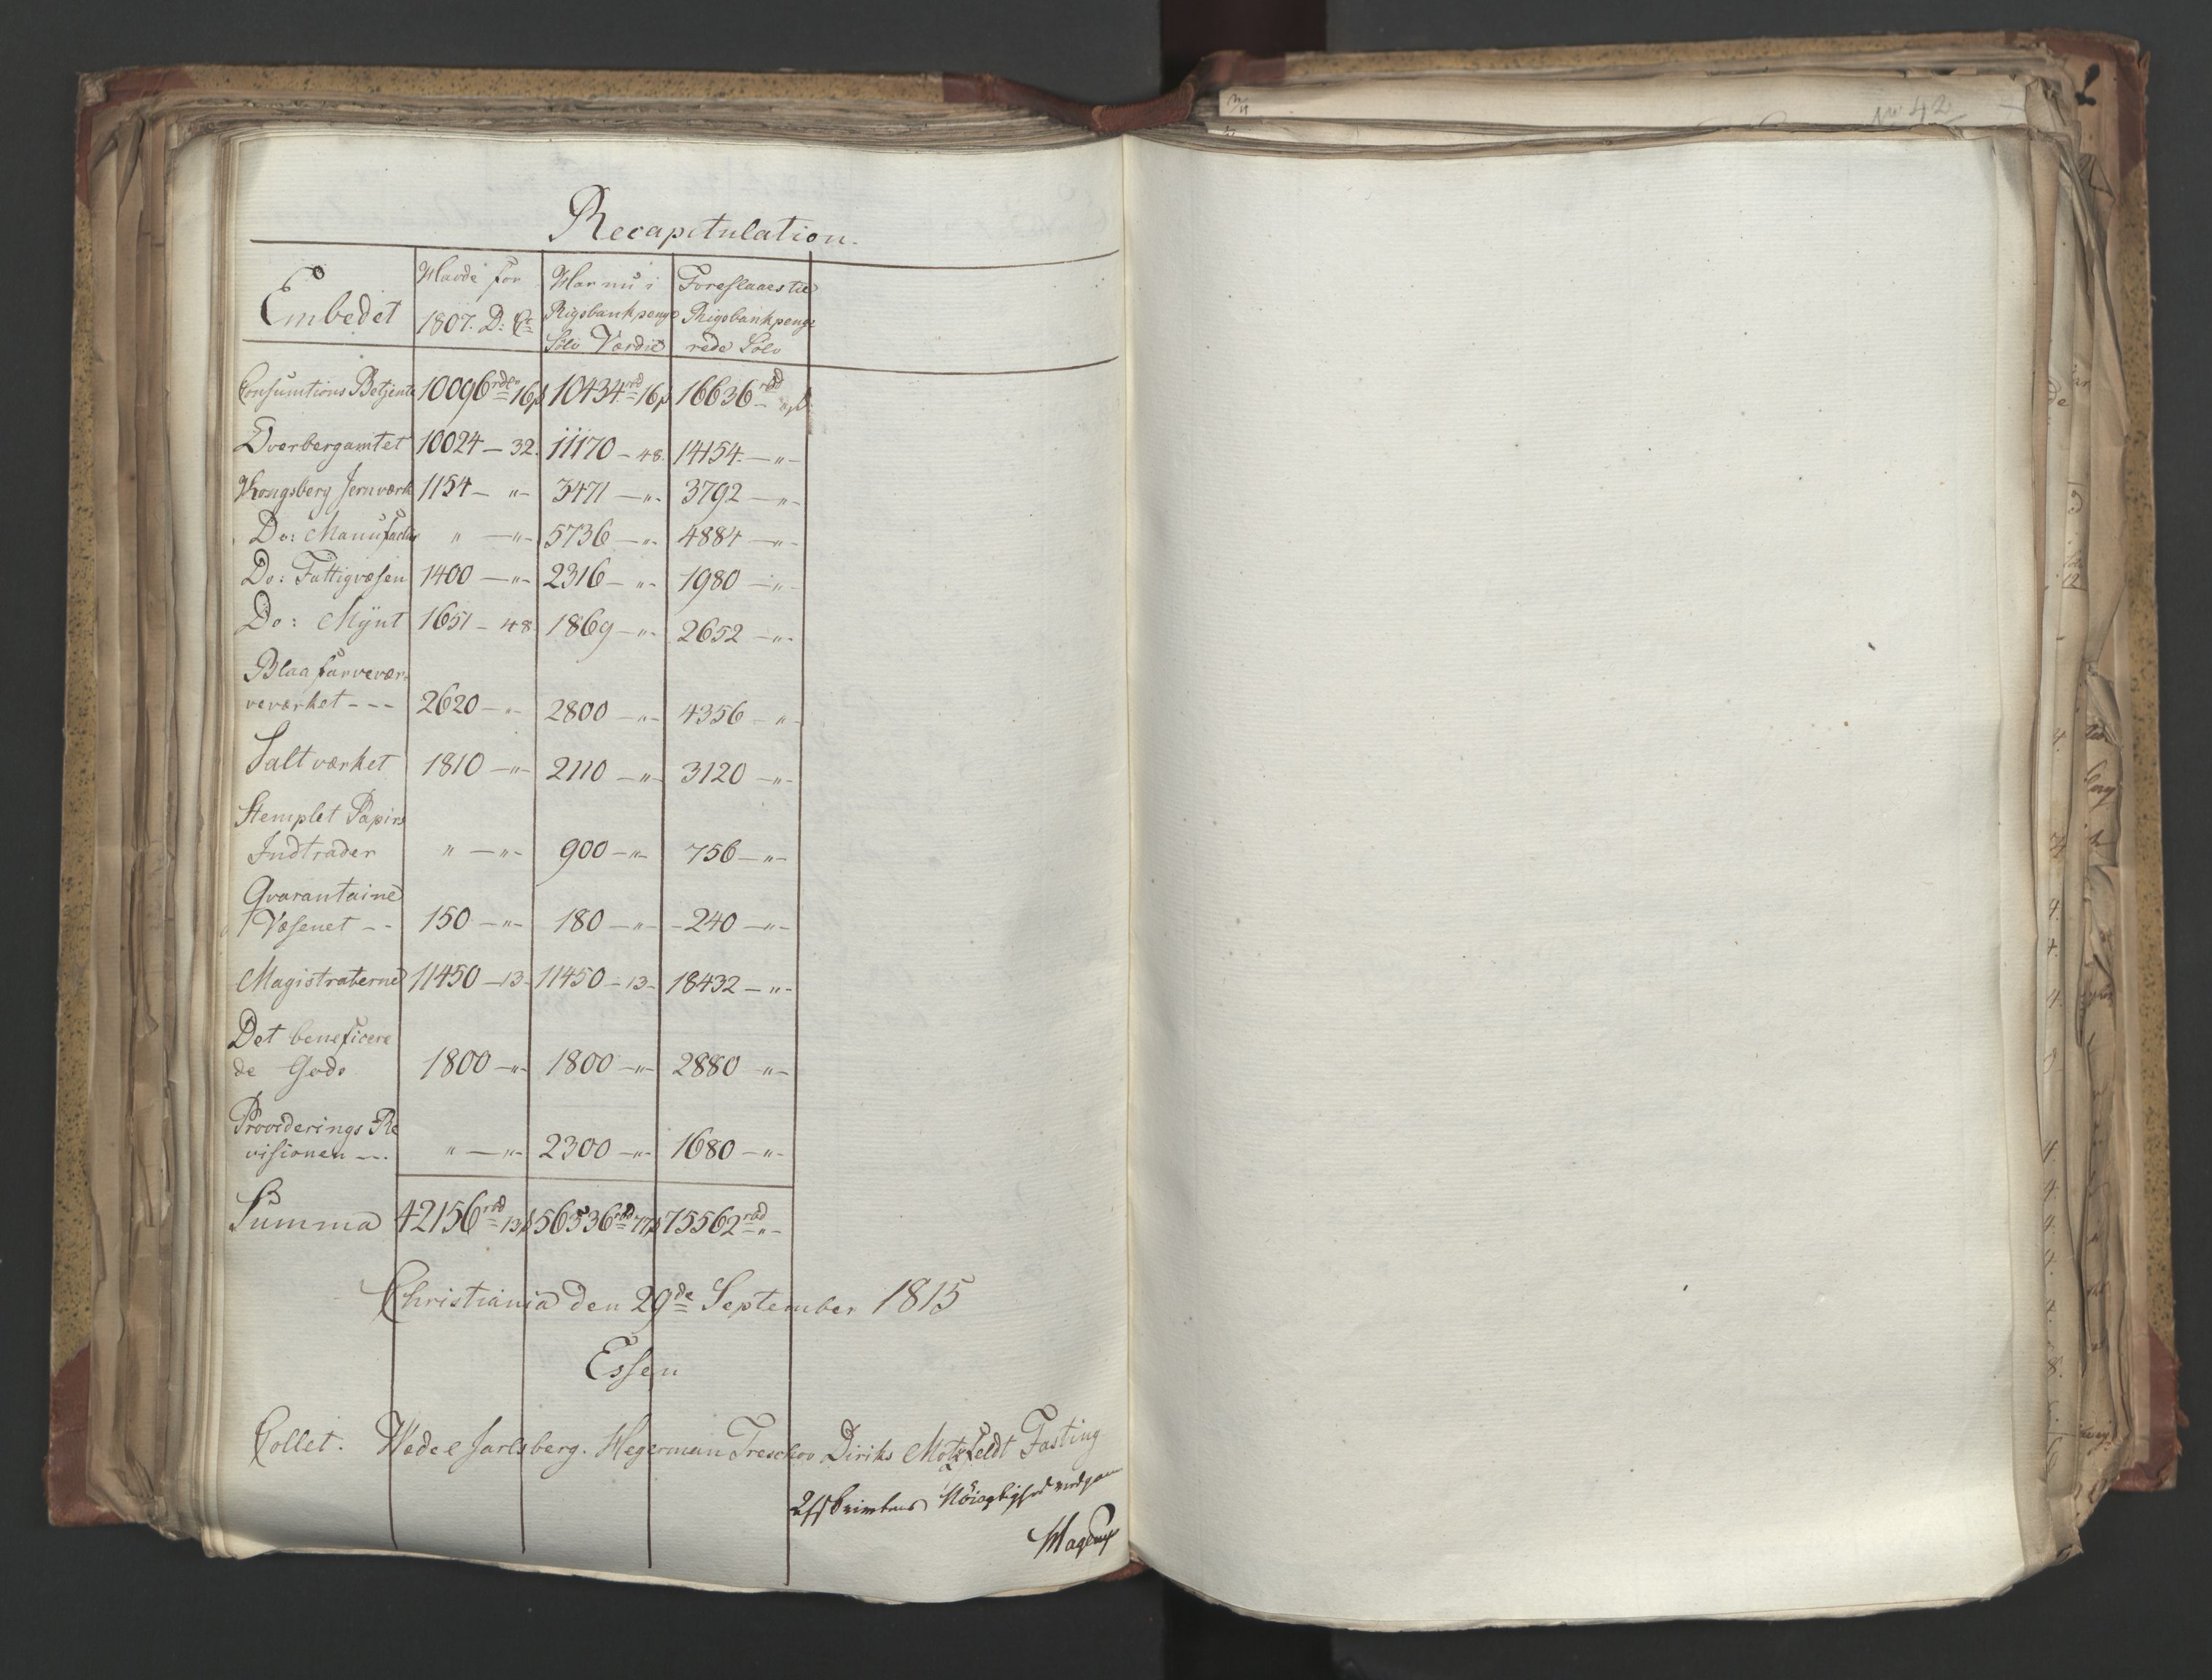 Recapitulation.
Embedet | Havde før 1807. D: C: | Har nu i Rigsbankpenge Sølv Værdie | Foreslaaes til Rigsbankpenge rede Sølv
Consumtions Betjente | 10096 rdr 16 s | 10434 rbd 16 s | 16636 rbd " s
Overbergamtet | 10024 — 32. | 11170 — 48. | 14154. — " —
Kongsberg Jernværk | 1154 — " — | 3471 — " — | 3792 — " —
Do: Manufactur | " — " — | 5736 — " — | 4884 — " —
Do: Fattigvæsen | 1400 — " — | 2316 — " — | 1980 — " —
Do: Mÿnt | 1651 — 48 | 1869 — " — | 2652 — " —
Blaafarvevær-
veværket - - - | 2620 — " — | 2800 — " — | 4356 — " —
Saltværket | 1810 — " — | 2110 — " — | 3120 — " —
Stemplet Papirs
Indtrader | " — " — | 900 — " — | 756 — " —
Qvarantaine
Væsenet - - | 150 — " — | 180 — " — | 240 — " —
Magistraterne | 11450 — 13 — | 11450 — 13 — | 18432 — " —
Det beneficere
de Gods | 1800 — " — | 1800 — " — | 2880 — " —
Providerings Re
visionen - - . | " — " — | 2300 — " — | 1680 — " —
Summa | 42156 rbd 13 s | 56536 rbd 77 s | 75562 rbd " —
Christiania den 29de September 1815
Essen
Collet. Wedel Jarlsberg. Hegerman Treschov Diriks Motzfeldt Fasting
Afskrivtens Nöiagtighed vedgaaer
№ 42